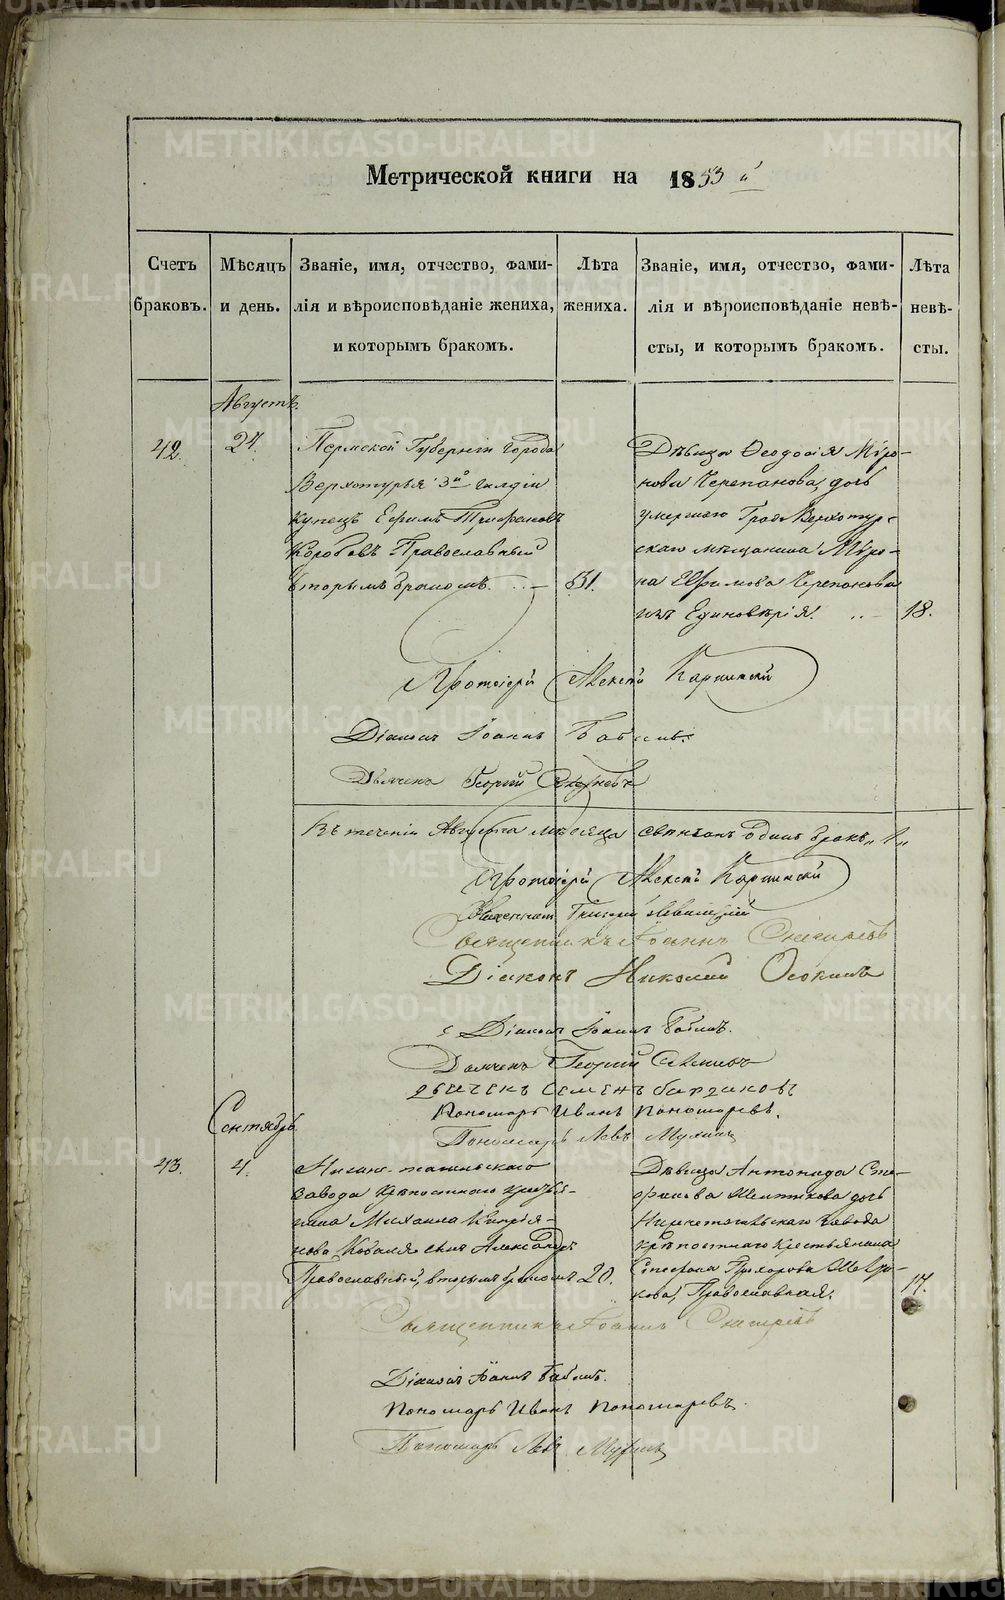 Метрической книги на 1853 й
Счетъ браковъ.
Мѣсяцъ и день.
Званіе, имя, отчество, фами-
лія и вѣроисповѣданіе жениха,
и которымъ бракомъ.
Лѣта жениха.
Званіе, имя, отчество, фами-
лія и вѣроисповѣданіе невѣ-
сты, и которымъ бракомъ.
Лѣта невѣ-
сты.
Августъ.
42.
24.
Пермской Губерніи города
Верхотурья 3й гилдіи
купецъ Ефимъ Трифановъ
Коробовъ Православный
вторымъ бракомъ.
31.
Дѣвица Ѳеодосія Миро-
нова Черепанова, дочь
умершаго Града Верхотур-
скаго мѣщанина Миро-
на Ефимова Черепанова
изъ Единовѣрія.
18.
Протоіерей Алексій Карпинскій
Діаконъ Іоаннъ Бабинъ.
Дьячекъ Георгій
Въ теченіи Августа мѣсяца свѣнчанъ одинъ бракъ „1„
Протоіерей Алексѣй Карпинскій
Священникъ Григорій
Священникъ Іоаннъ Снегиревъ
Діаконъ Николай Осокинъ
Діаконъ Іоаннъ Бабинъ.
Дьячекъ Георгій
Дьячекъ Семенъ
Пономарь Иванъ Пономаревъ.
Пономарь Левъ Мухинъ
Сентябрь.
43.
4.
Нижне-тагильскаго
завода крѣпостнаго кресть-
янина Михаила Кипрія-
нова Кобаля сынъ Александръ
Православный, вторымъ бракомъ
20.
Дѣвица Антонида Сте-
фанова
дочь
Нижнетагильскаго завода
крѣпостнаго крестьянина
Стефана Прохорова
Православная.
17.
Священникъ Іоаннъ Снегиревъ
Діаконъ Іоаннъ Бабинъ.
Пономарь Иванъ Пономаревъ.
Пономарь Левъ Мухинъ
METRIKI.GASO-URAL.RU